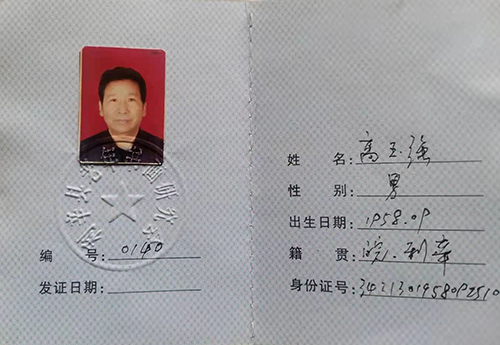 编 号: 0140
发证日期:
姓 名: 高玉强
性 别: 男
出生日期: 1958.09
籍 贯: 皖.利辛
身份证号: